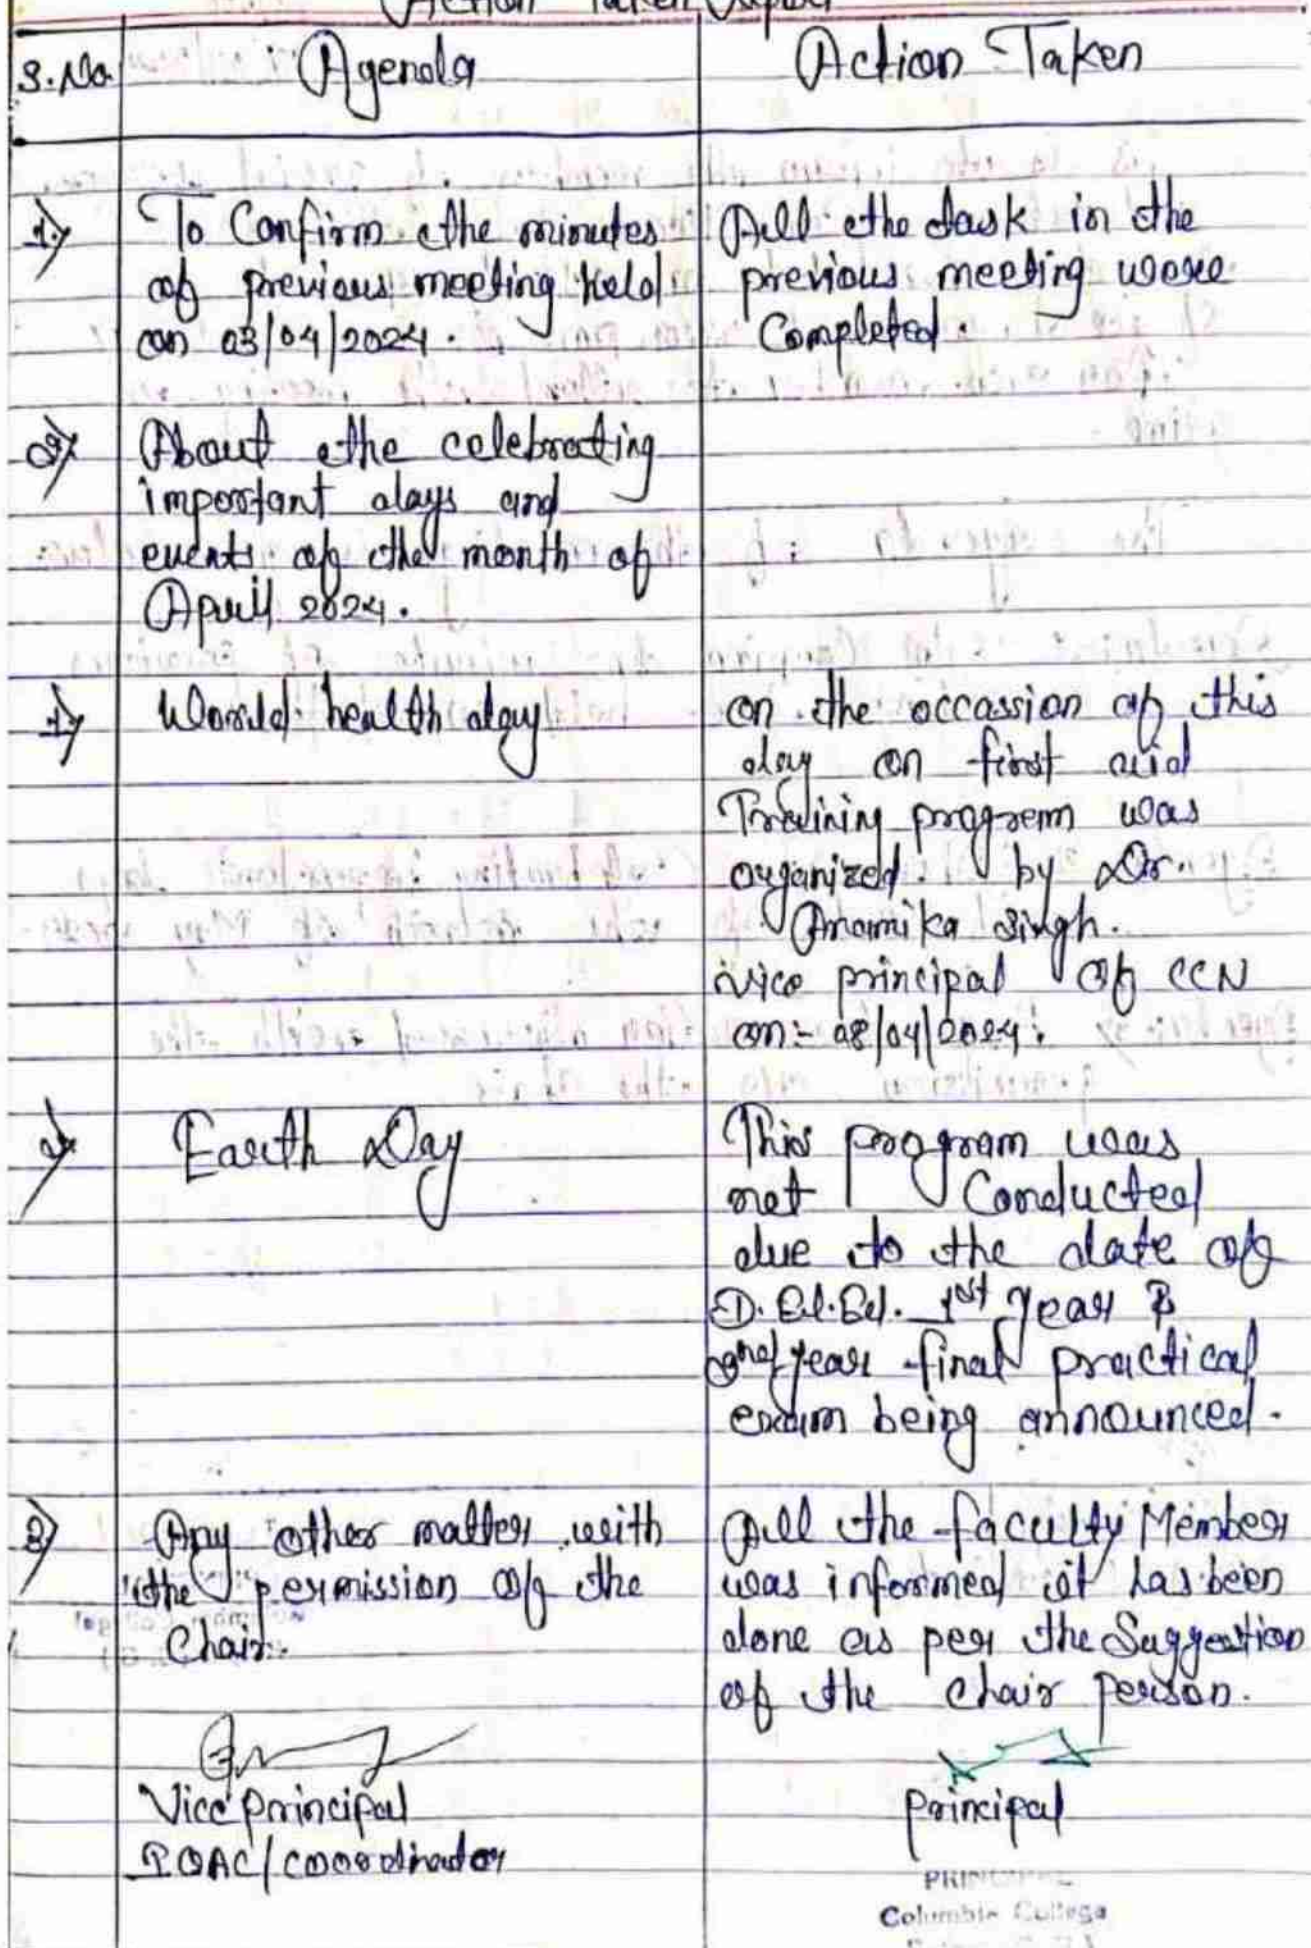 Action Taken Report
S.No. Agenda Action Taken
1) To Confirm the minutes
of previous meeting held
on 03/04/2024.
All the task in the
previous meeting were
Completed.
2) About the celebrating
important days and
events of the month of
April 2024.
1) World health day
on the occassion of this
day on first aid
Training progrem was
organized by Dr.
Anamika Singh.
vice principal of CCN
on:- 08/04/2024.
2) Earth Day
This program was
not Conducted
due to the date of
D.El.Ed. 1st year &
2nd year final practical
exam being announced.
3) Any other matter with
the permission of the
Chair.
All the faculty Member
was informed it has been
done as per the Suggestion
of the chair person.
Vice principal
IQAC/coordinator
principal
PRINCIPAL
Columbia College